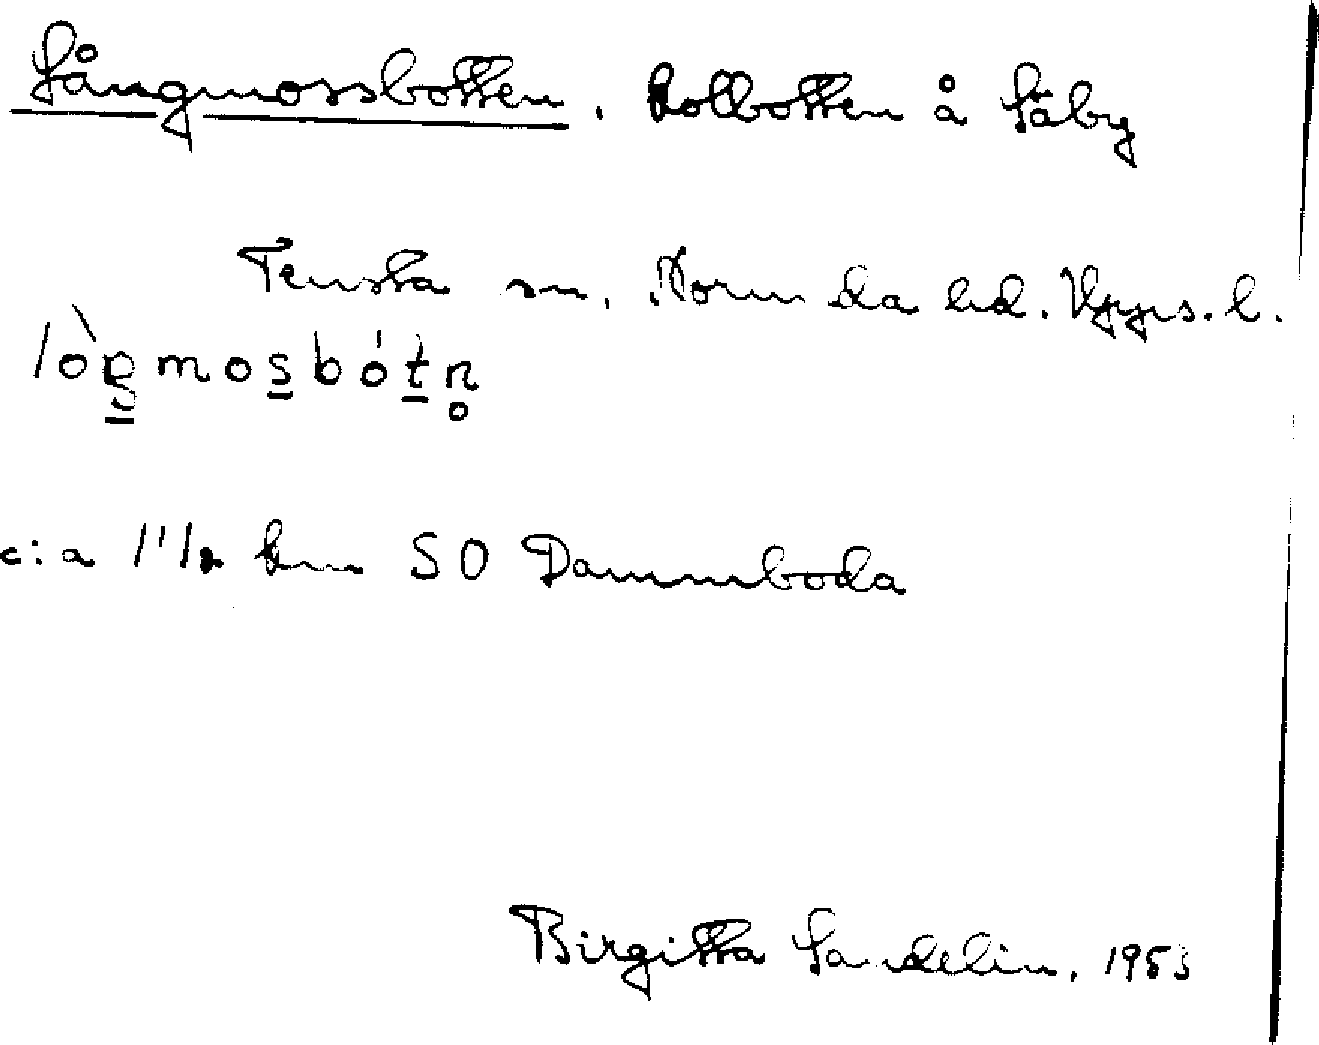 Långmossbotten. Kolbotten å Säby
Tensta sn. Norunda hd. Upps. l.
lòŋmosbótn̥
c:a 1 1/2 km SO Dammboda
Birgitta Sandelin, 1953